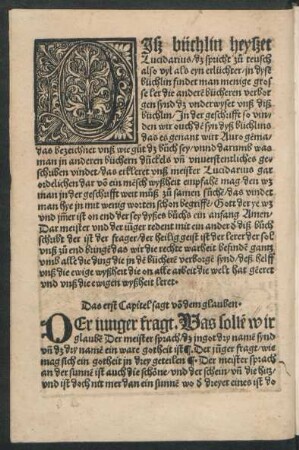 DIsz büchlin heyszet
Lucidarius/dz spricht zů teusch
also vyl als eyn erlüchter/in dysz
büchlin findet man menige gros-
se ler die andere bücheren verbor-
gen synd dz underwyset unß diß
büchlin/In der geschrifft so vin-
den wir ouch dē syn dyß büchlins
das es genant wirt Auro gēma/
das bezeichnet unß wie gůt dz bůch sey/unnd darumb was
man in anderen bücheren dūckels uñ unverstentliches ge-
schriben vindet/das erkleret unß meister Lucidarius gar
ordelichen dar vō ein mēsch wyßheit empfahē mag den wz
man in der geschrifft weit můß zů samen sůchē/das vindet
man hye in mit wenig worten schon begriffē/Gott der ye wz
und ymēr ist on end der sey dyßes bůchs ein anfang Amen/
Dar meister und der iüger redent mit ein ander dß diß bůch
schribt der ist der frager/der heilig geist ist der lerer der sol
unß zů end bringē das wir die rechte warheit befindē gantz
umb alle die ding die in dē bůchere verborgē sind/deß helff
unß die ewige wyßheit die on alle arbeit die welt hat geeret
und unß die ewigen wyßheit leret·
Das erst Capitel sagt vō dem glauben·
DEr iunger fragt. Was sollē wir
glaubē Der meister sprach/dz in got dry namē synd
uñ dz dry namē ein ware gotheit ist ¶ Der iūger fragt/wie
mag sich ein gotheit in drey geteilen ¶ Der meister sprach
an der sunnē ist auch die schöne/und der schein/uñ die hitz/
und ist doch nit mer dan ein sunnē wo d dreyer eines ist do